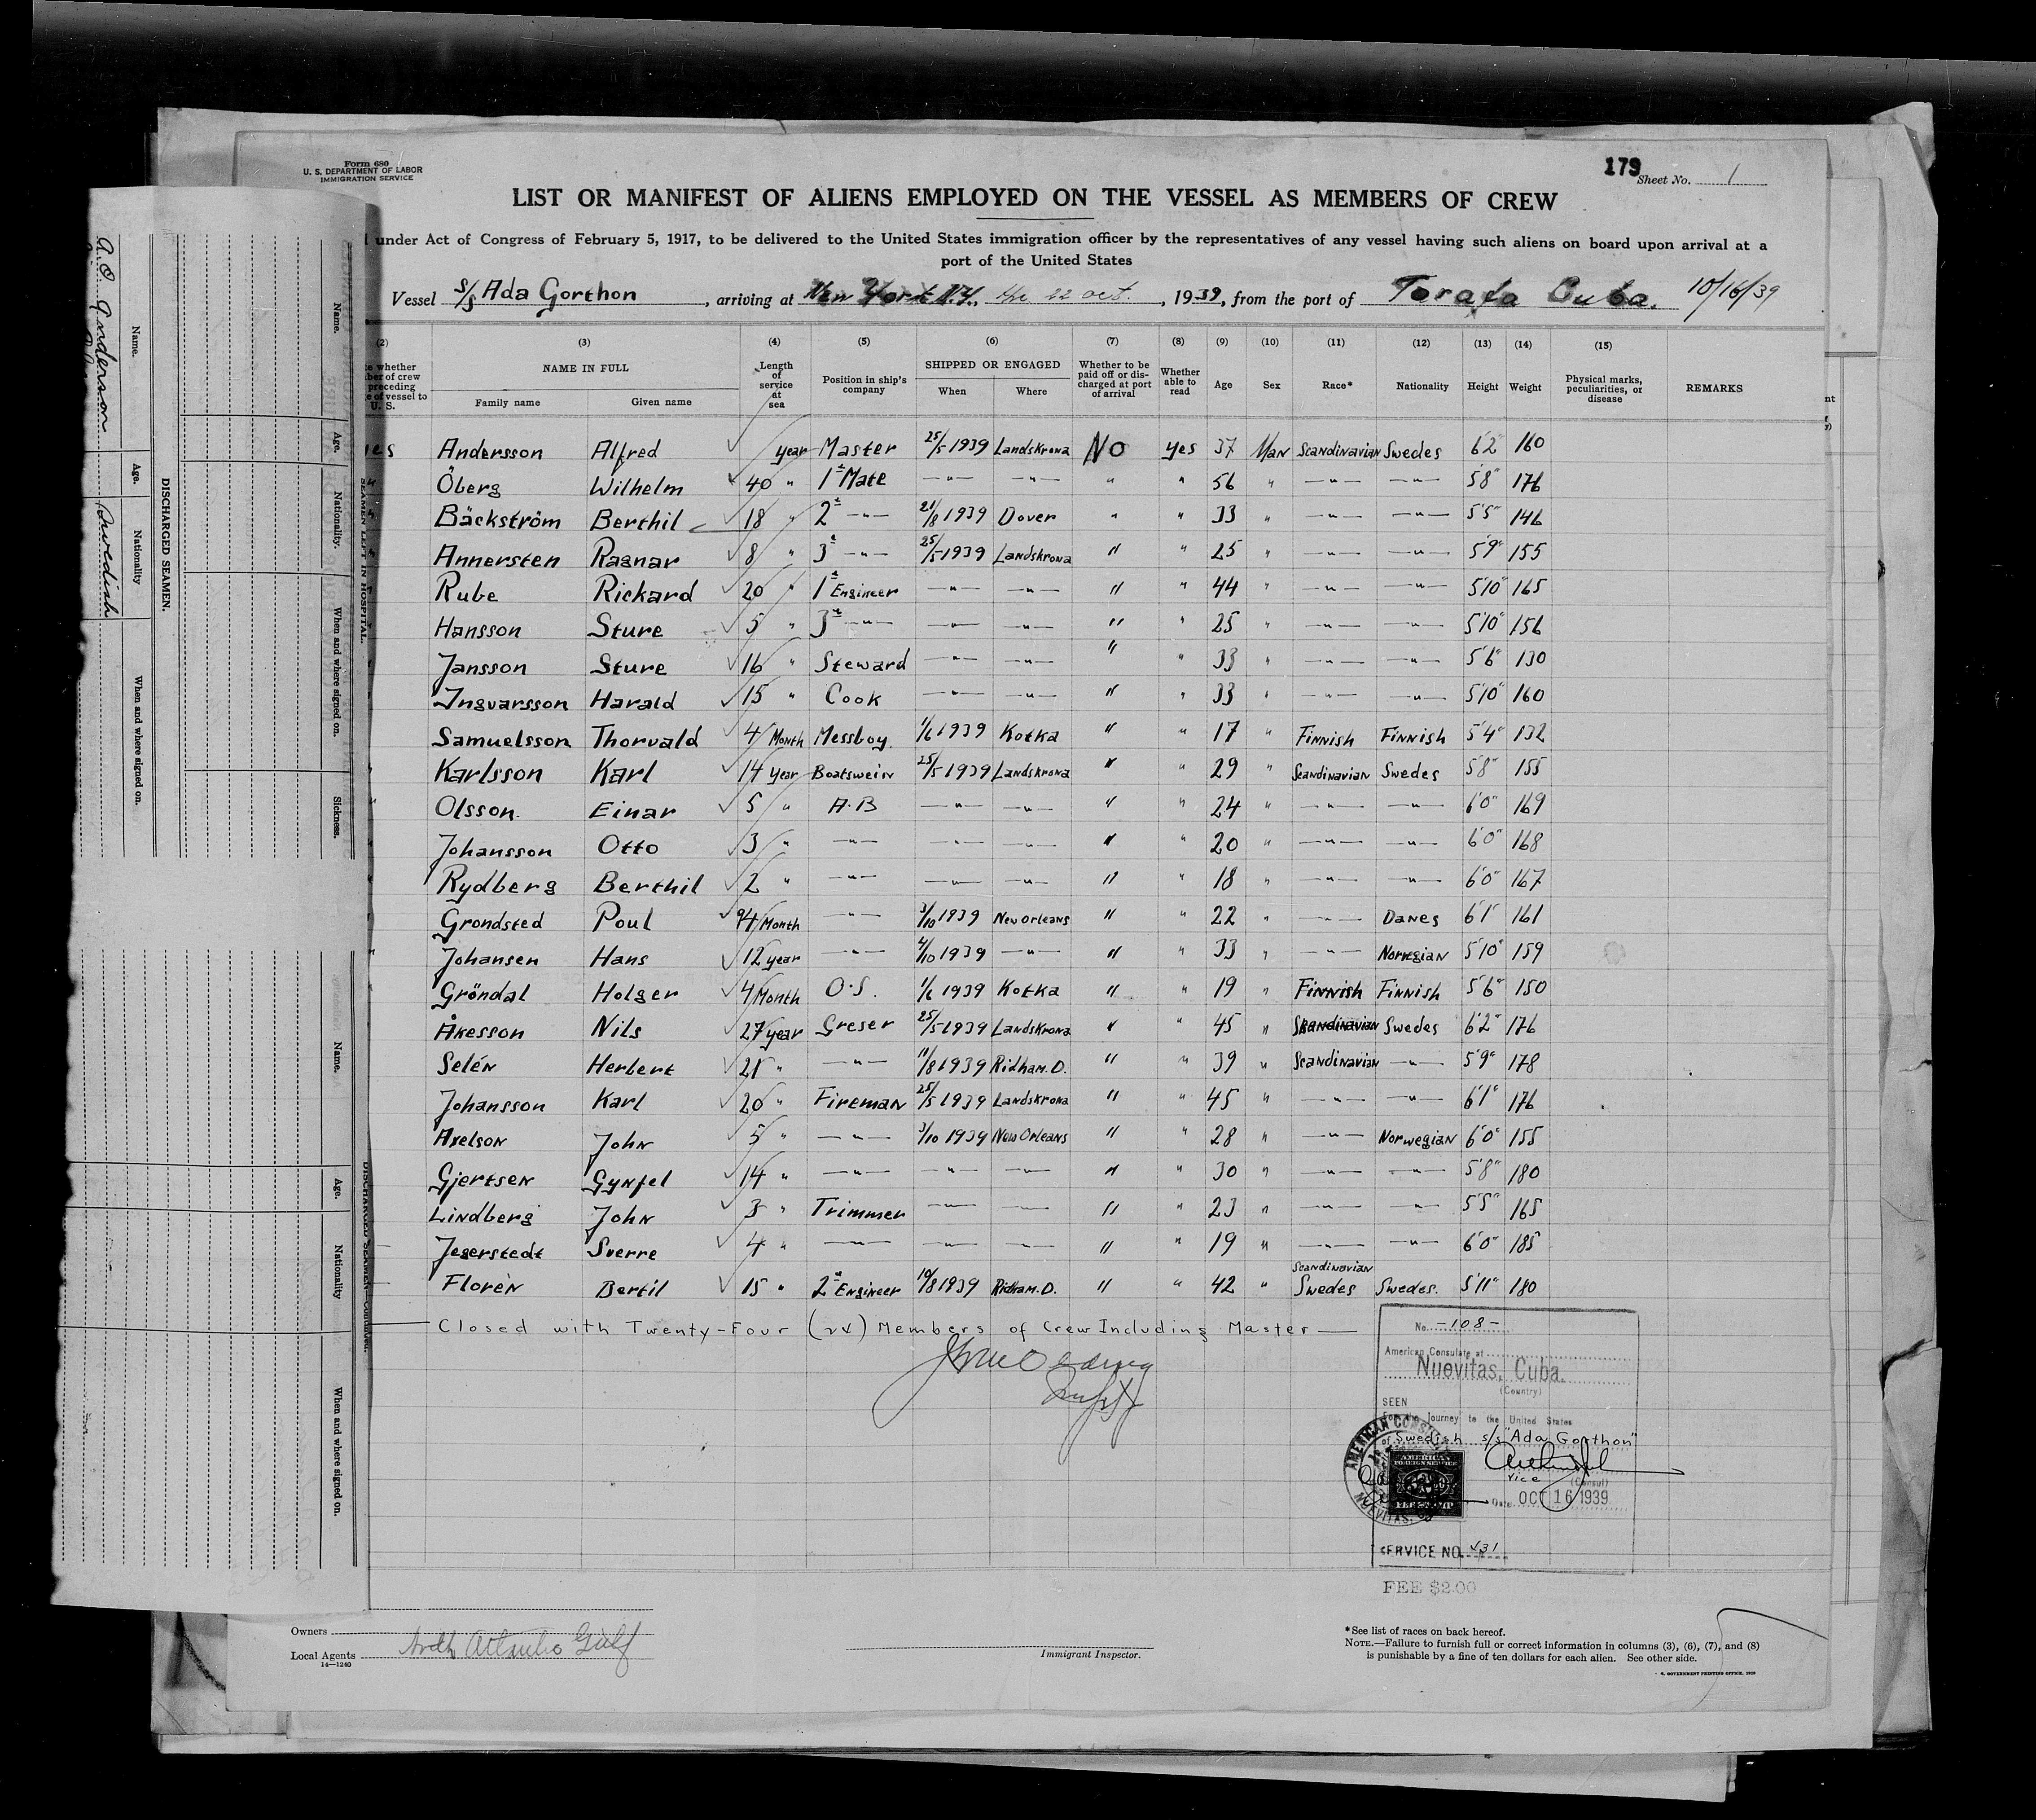 Form 680
U. S. DEPARTMENT OF LABOR
IMMIGRATION SERVICE
179
Sheet No. 1
LIST OR MANIFEST OF ALIENS EMPLOYED ON THE VESSEL AS MEMBERS OF CREW
under Act of Congress of February 5, 1917, to be delivered to the United States immigration officer by the representatives of any vessel having such aliens on board upon arrival at a
port of the United States
Vessel S/S Ada Gorthon, arriving at New York N.Y., the 22 oct., 1939, from the port of Tarafa Cuba. 10/16/39
(2) (3) (4) (5) (6) (7) (8) (9) (10) (11) (12) (13) (14) (15)
whether
of crew
preceding
of vessel to
U. S.
NAME IN FULL
Family name Given name
Length of service at sea
Position in ship's company
SHIPPED OR ENGAGED
When Where
Whether to be paid off or discharged at port of arrival
Whether able to read
Age Sex Race* Nationality Height Weight
Physical marks, peculiarities, or disease
REMARKS
Andersson Alfred year Master 25/5 1939 Landskrona No yes 37 Man Scandinavian Swedes 6'2" 160
Öberg Wilhelm 40 " 1st Mate —"— —"— " " 56 " —"— —"— 5'8" 176
Bäckström Berthil 18 " 2 —"— 21/8 1939 Dover " " 33 " —"— —"— 5'5" 146
Annersten Ragnar 8 " 3 —"— 25/5 1939 Landskrona " " 25 " —"— —"— 5'9" 155
Rube Rickard 20 " 1 Engineer —"— —"— " " 44 " —"— —"— 5'10" 165
Hansson Sture 5 " 3 —"— —"— —"— " " 25 " —"— —"— 5'10" 156
Jansson Sture 16 " Steward —"— —"— " " 33 " —"— —"— 5'6" 130
Ingvarsson Harald 15 " Cook —"— —"— " " 33 " —"— —"— 5'10" 160
Samuelsson Thorvald 4 Month Messboy. 1/6 1939 Kotka " " 17 " Finnish Finnish 5'4" 132
Karlsson Karl 14 year Boatswein 25/5 1939 Landskrona " " 29 " Scandinavian Swedes 5'8" 155
Olsson. Einar 5 " A.B —"— —"— " " 24 " —"— —"— 6'0" 169
Johansson Otto 3 " —"— —"— —"— " " 20 " —"— —"— 6'0" 168
Rydberg Berthil 2 " —"— —"— —"— " " 18 " —"— —"— 6'0" 167
Grondsted Poul 94 Month —"— 3/10 1939 New Orleans " " 22 " —"— Danes 6'1" 161
Johansen Hans 12 year —"— 4/10 1939 —"— " " 33 " —"— Norwegian 5'10" 159
Gröndal Holger 4 Month O.S. 1/6 1939 Kotka " " 19 " Finnish Finnish 5'6" 150
Åkesson Nils 27 year Greser 25/5 1939 Landskrona " " 45 " Skandinavian Swedes 6'2" 176
Selén Herbert 21 " —"— 11/8 1939 Ridham. D. " " 39 " Scandinavian —"— 5'9" 178
Johansson Karl 20 " Fireman 25/5 1939 Landskrona " " 45 " —"— —"— 6'1" 176
Axelson John 5 " —"— 3/10 1939 New Orleans " " 28 " —"— Norwegian 6'0" 155
Gjertsen Gynfel 14 " —"— —"— —"— " " 30 " —"— —"— 5'8" 180
Lindberg John 3 " Trimmer —"— —"— " " 23 " —"— —"— 5'5" 165
Jegerstedt Sverre 4 " —"— —"— —"— " " 19 " —"— —"— 6'0" 185
Florén Bertil 15 " 2 Engineer 10/8 1939 Ridham. D. " " 42 " Scandinavian Swedes Swedes. 5'11" 180
Closed with Twenty-Four (24) Members of Crew Including Master
No. -108-
American Consulate at
Nuevitas, Cuba.
(Country)
SEEN
For the Journey to the United States
of Swedish s/s "Ada Gorthon"
vice
(Consul)
Date OCT 16 1939
AMERICAN FOREIGN SERVICE
FEE STAMP
SERVICE NO. 431
FEE $2.00
Owners
Local Agents North Atlantic Gulf
14—1240
Immigrant Inspector.
*See list of races on back hereof.
NOTE.—Failure to furnish full or correct information in columns (3), (6), (7), and (8)
is punishable by a fine of ten dollars for each alien. See other side.
DISCHARGED SEAMEN.
Name. Age. Nationality When and where signed on.
A. O. Anderson Swedish
SEAMEN LEFT IN HOSPITAL.
Name. Age. Nationality. When and where signed on. Sickness.
DISCHARGED SEAMEN—Continued.
Name. Age. Nationality When and where signed on.